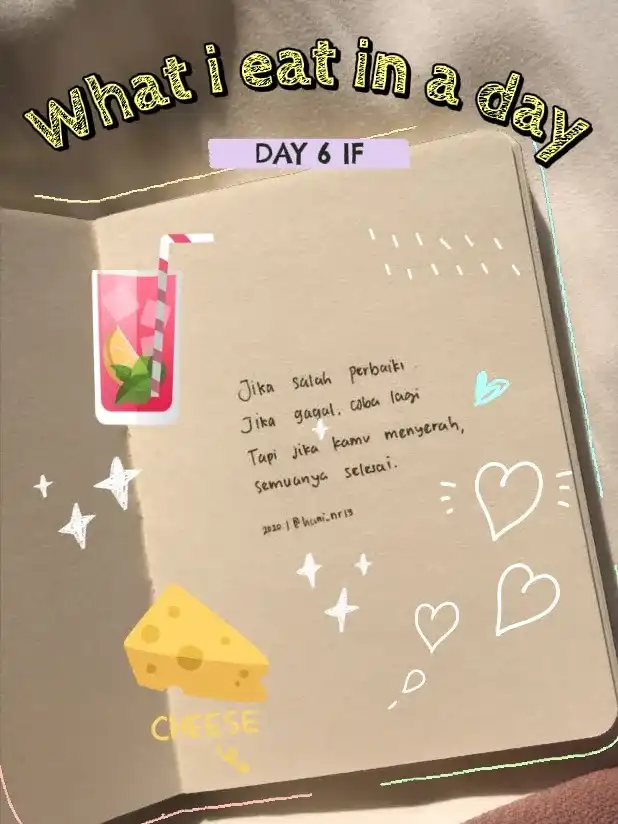 What i eat in a day
DAY 6 IF
Jika salah perbaiki.
Jika gagal, coba lagi
Tapi jika kamu menyerah,
semuanya selesai.
2020 | @hani_nr13
CHEESE